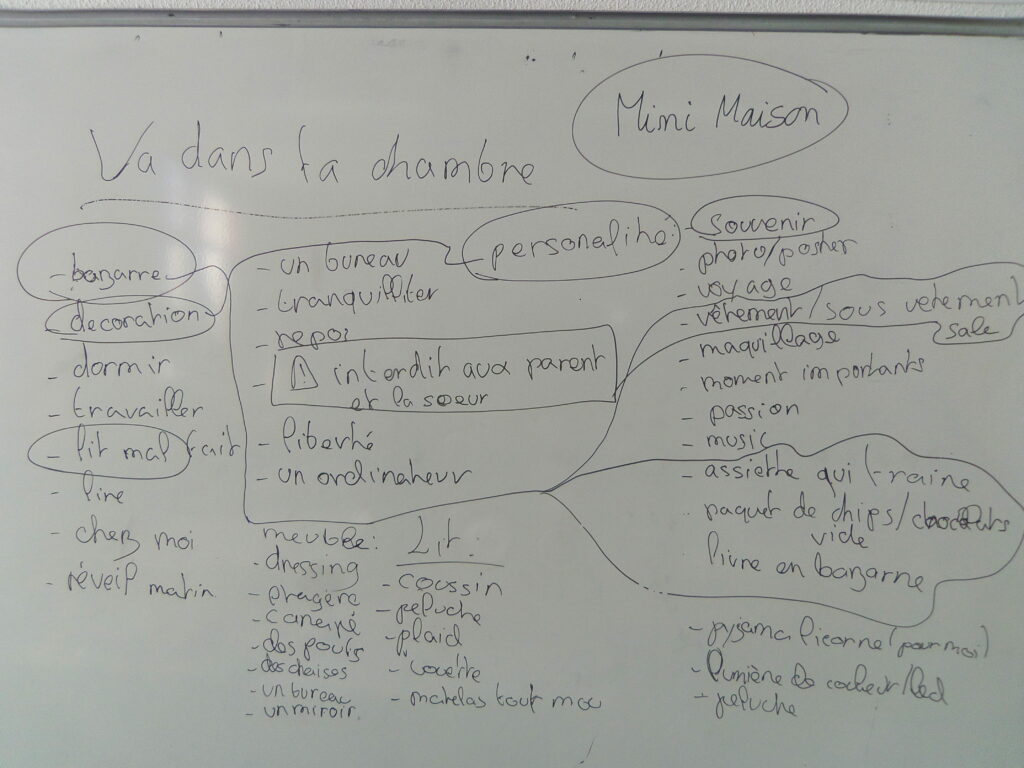 Mini Maison
Va dans ta chambre
- bazarre
- decoration
- dormir
- travailler
- lit mal fait
- lire
- chez moi
- réveil matin
personalité
- un bureau
- tranquilliter
- repos
- ⚠ interdit aux parent
et la soeur
- liberté
- un ordinateur
meuble:
- dressing
- etagère
- canapé
- des poufs
- des chaises
- un bureau
- un miroir
Lit:
- coussin
- peluche
- plaid
- couette
- matelas tout mou
- souvenir
- photo/poster
- voyage
- vêtement/sous vetement
sale
- maquillage
- moment importants
- passion
- music
- assiette qui traine
- paquet de chips/
vide
livre en bazarre
- pyjama licorne (pour moi)
- lumière de couleur/led
- peluche